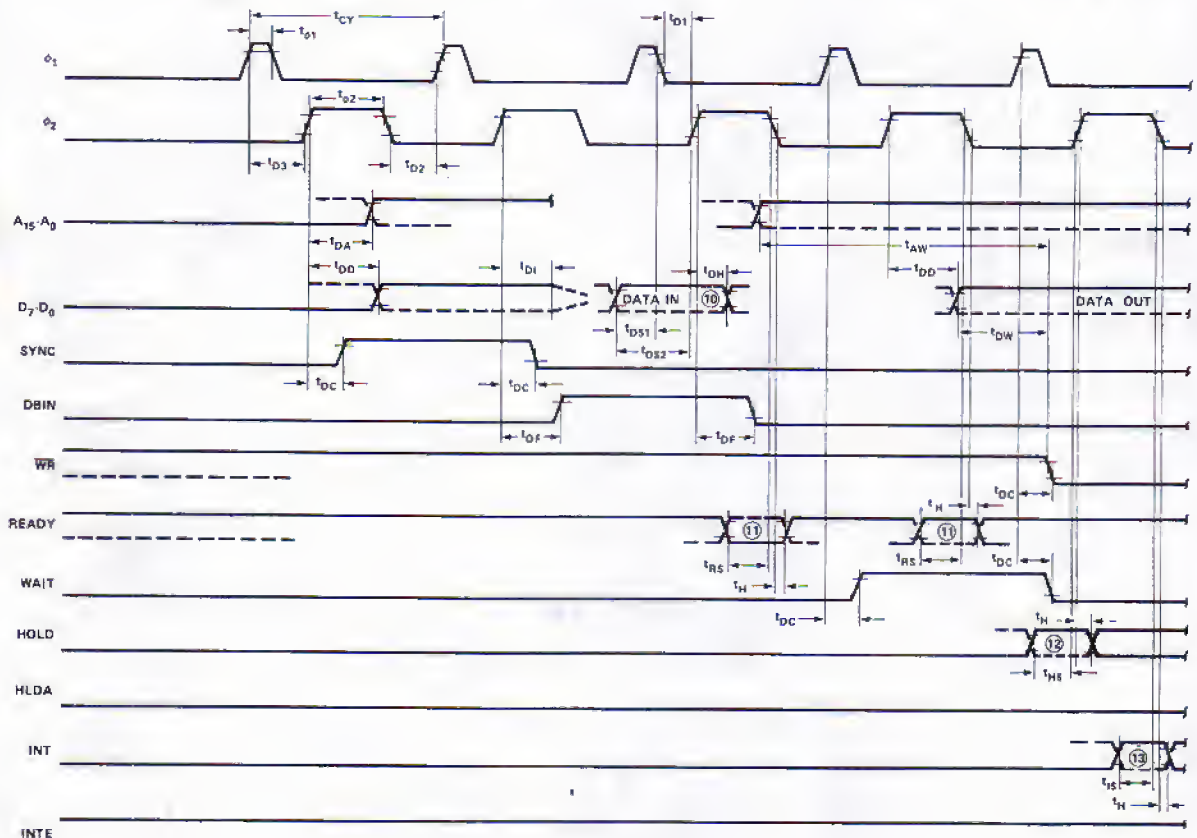 tCY
tD1
tø1
ø1
tø2
ø2
tD3
tD2
A15-A0
tDA
tAW
tDD
tDI
tDH
tDD
D7-D0
DATA IN
⑩
DATA OUT
tDS1
tDW
tDS2
SYNC
tDC
tDC
DBIN
tDF
tDF
WR
tDC
tH
READY
⑪
⑪
tRS
tRS
tDC
WAIT
tH
tDC
tH
HOLD
⑫
tHS
HLDA
INT
⑬
tIS
tH
INTE